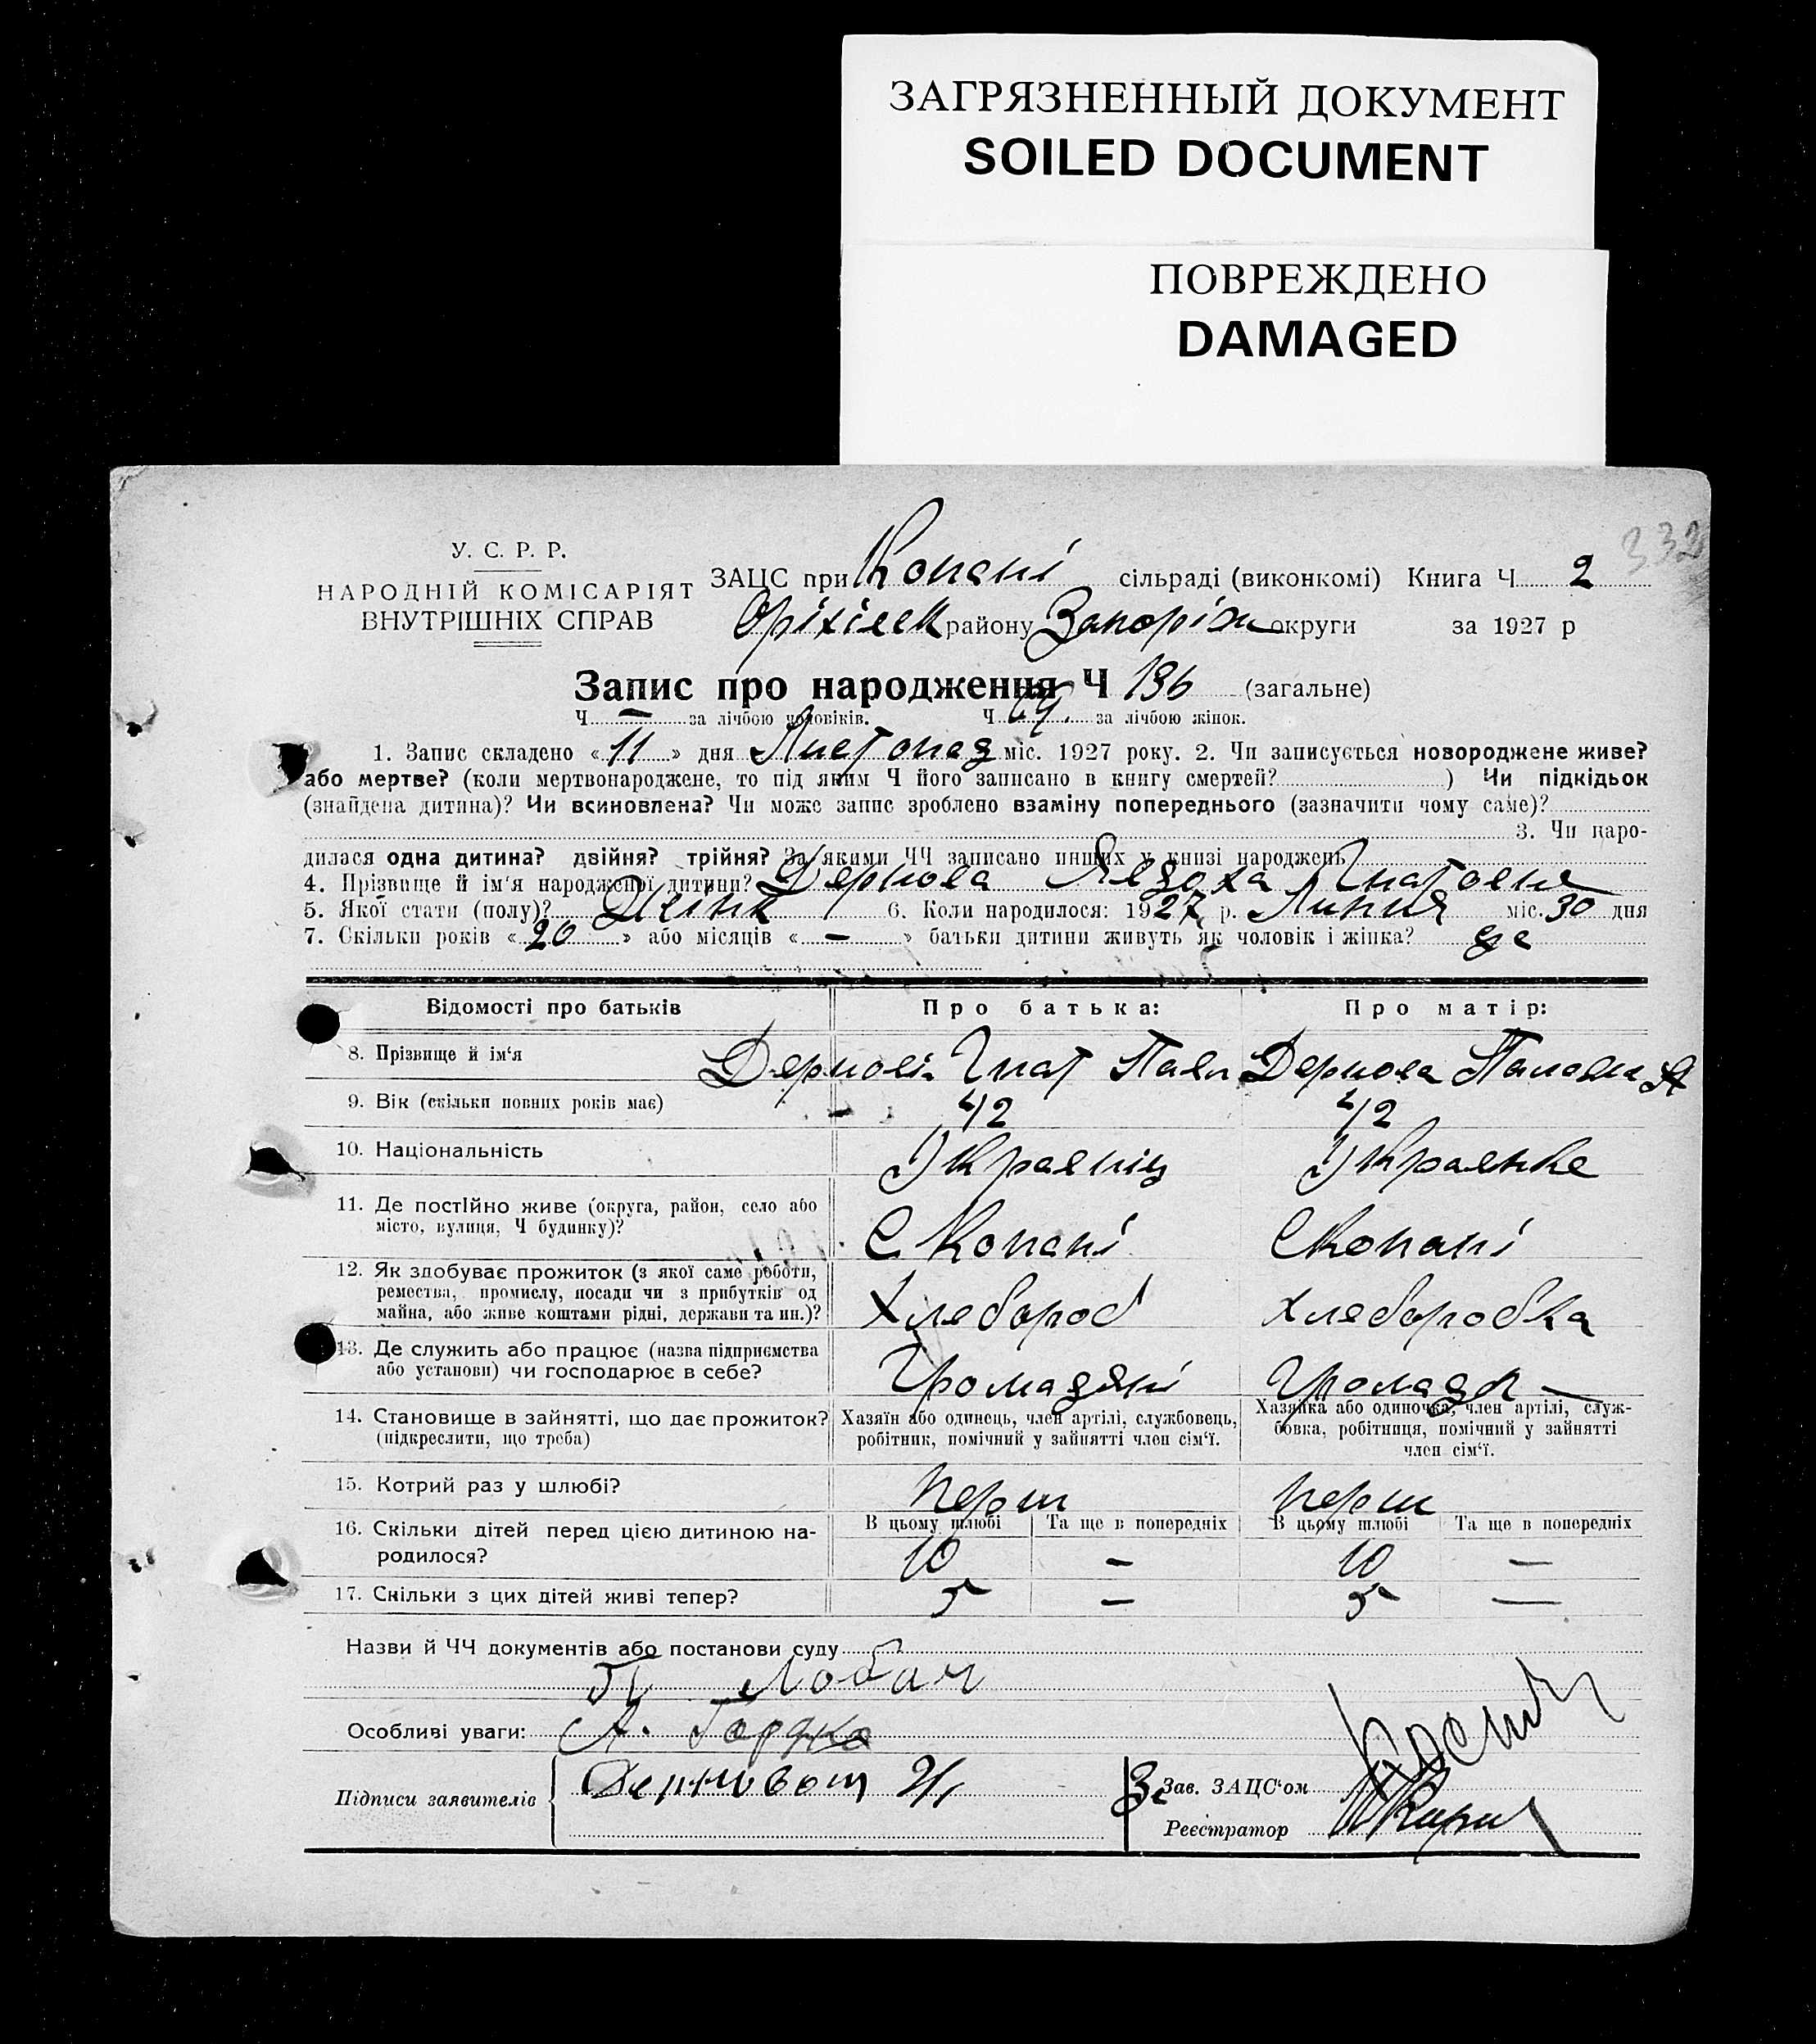 ЗАГРЯЗНЕННЫЙ ДОКУМЕНТ
SOILED DOCUMENT
ПОВРЕЖДЕНО
DAMAGED
332
У. С. Р. Р.
НАРОДНІЙ КОМІСАРІЯТ
ВНУТРІШНІХ СПРАВ
ЗАЦС при Копані сільраді (виконкомі) Книга Ч 2
Оріхівск району Запоріж округи за 1927 р
Запис про народження Ч 136 (загальне)
Ч — за лічбою чоловіків. Ч за лічбою жінок.
1. Запис складено «11» дня Листопад міс. 1927 року. 2. Чи записується новороджене живе?
або мертве? (коли мертвонароджене, то під яким Ч його записано в книгу смертей? ) Чи підкідьок
(знайдена дитина)? Чи всиновлена? Чи може запис зроблено взаміну попереднього (зазначити чому саме)?
3. Чи наро-
дилася одна дитина? двійня? трійня? За якими ЧЧ записано инших у книзі народжень
4. Прізвище й ім'я народженої дитини? Дернова Явдоха Гнатовна
5. Якої стати (полу)? Жінк 6. Коли народилося: 1927 р. Липня міс. 30 дня
7. Скільки років «20» або місяців «—» батьки дитини живуть як чоловік і жінка? да
Відомості про батьків Про батька: Про матір:
8. Прізвище й ім'я Дернові Гнат Павл Дернова Палажка
9. Вік (скільки повних років має) 42 42
10. Національність Украянець Украянка
11. Де постІйно живе (округа, район, село або
місто, вулиця, Ч будинку)? С Копані С Копані
12. Як здобуває прожиток (з якої саме роботи,
ремества, промислу, посади чи з прибутків од
майна, або живе коштами рідні, держави та ин.)? Хлебороб Хлеборобка
13. Де служить або працює (назва підприємства
або установи) чи господарює в себе? Громадяні Громадя —
14. Становище в зайнятті, що дає прожиток?
(підкреслити, що треба)
Хазяїн або одинець, член артілі, службовець,
робітник, помічний у зайнятті член сім'ї.
Хазяйка або одиночка, член артілі, служ-
бовка, робітниця, помічний у зайнятті
член сім'ї.
15. Котрий раз у шлюбі? перш перш
16. Скільки дітей перед цією дитиною на-
родилося?
В цьому шлюбі Та ще в попередніх В цьому шлюбі Та ще в попередніх
10 — 10 —
17. Скільки з цих дітей живі тепер? 5 — 5 —
Назви й ЧЧ документів або постанови суду
П Лобач
Особливі уваги: А. Гордко
Підписи заявителів
За Зав. ЗАЦС'ом
Реєстратор